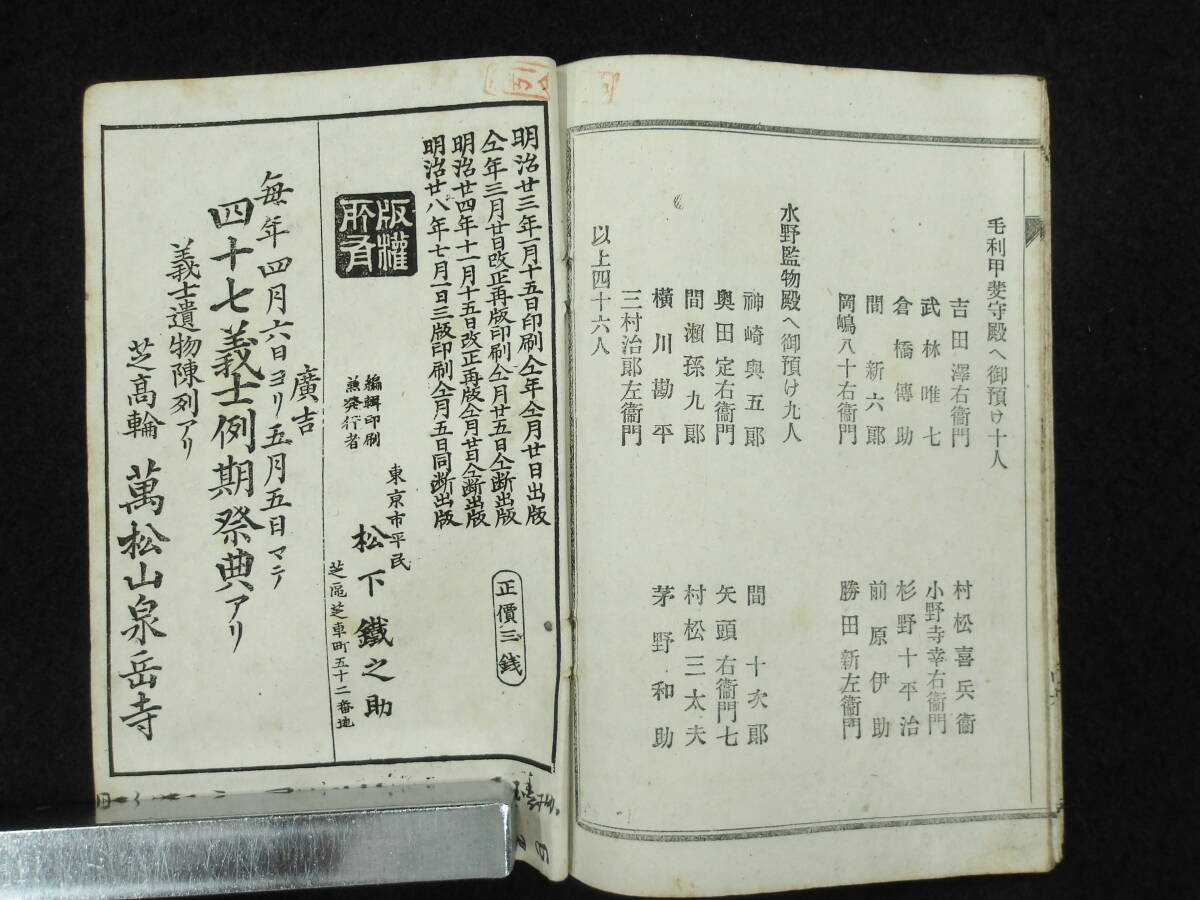 毛利甲斐守殿へ御預け十人
吉田澤右衞門
武林唯七
倉橋傳助
間新六郞
岡嶋八十右衞門
村松喜兵衞
小野寺幸右衞門
杉野十平治
前原伊助
勝田新左衞門
水野監物殿へ御預け九人
神崎與五郞
奧田定右衞門
間瀨孫九郞
橫川勘平
三村治郞左衞門
間十次郞
矢頭右衞門七
村松三太夫
茅野和助
以上四十六人
明治廿三年一月十五印刷仝年仝月廿日出版
仝年三月廿日改正再版印刷仝月廿五日仝斷出版
明治廿四年十一月十五日改正再版仝月廿日仝斷出版
明治廿八年七月一日三版印刷仝月五日同斷出版
正價三錢
版權
所有
編輯印刷
兼發行者
東京市平民
松下鐵之助
芝區芝車町五十二番地
廣吉
每年四月六日ヨリ五月五日マテ
四十七義士例期祭典アリ
義士遺物陳列アリ
芝高輪
萬松山泉岳寺